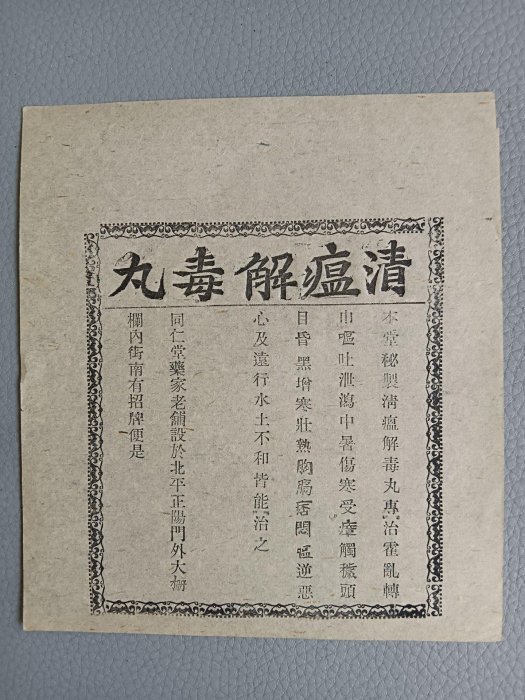 清瘟解毒丸
本堂秘製淸瘟解毒丸專治霍亂轉
嘔吐泄瀉中暑傷寒受瘴觸穢頭
目昏黑增寒壯熟胸膈痞悶嘔逆惡
心及遠行水土不和皆能治之
同仁堂藥家老舖設於北平正陽門外大柵
欄內街南有招牌便是